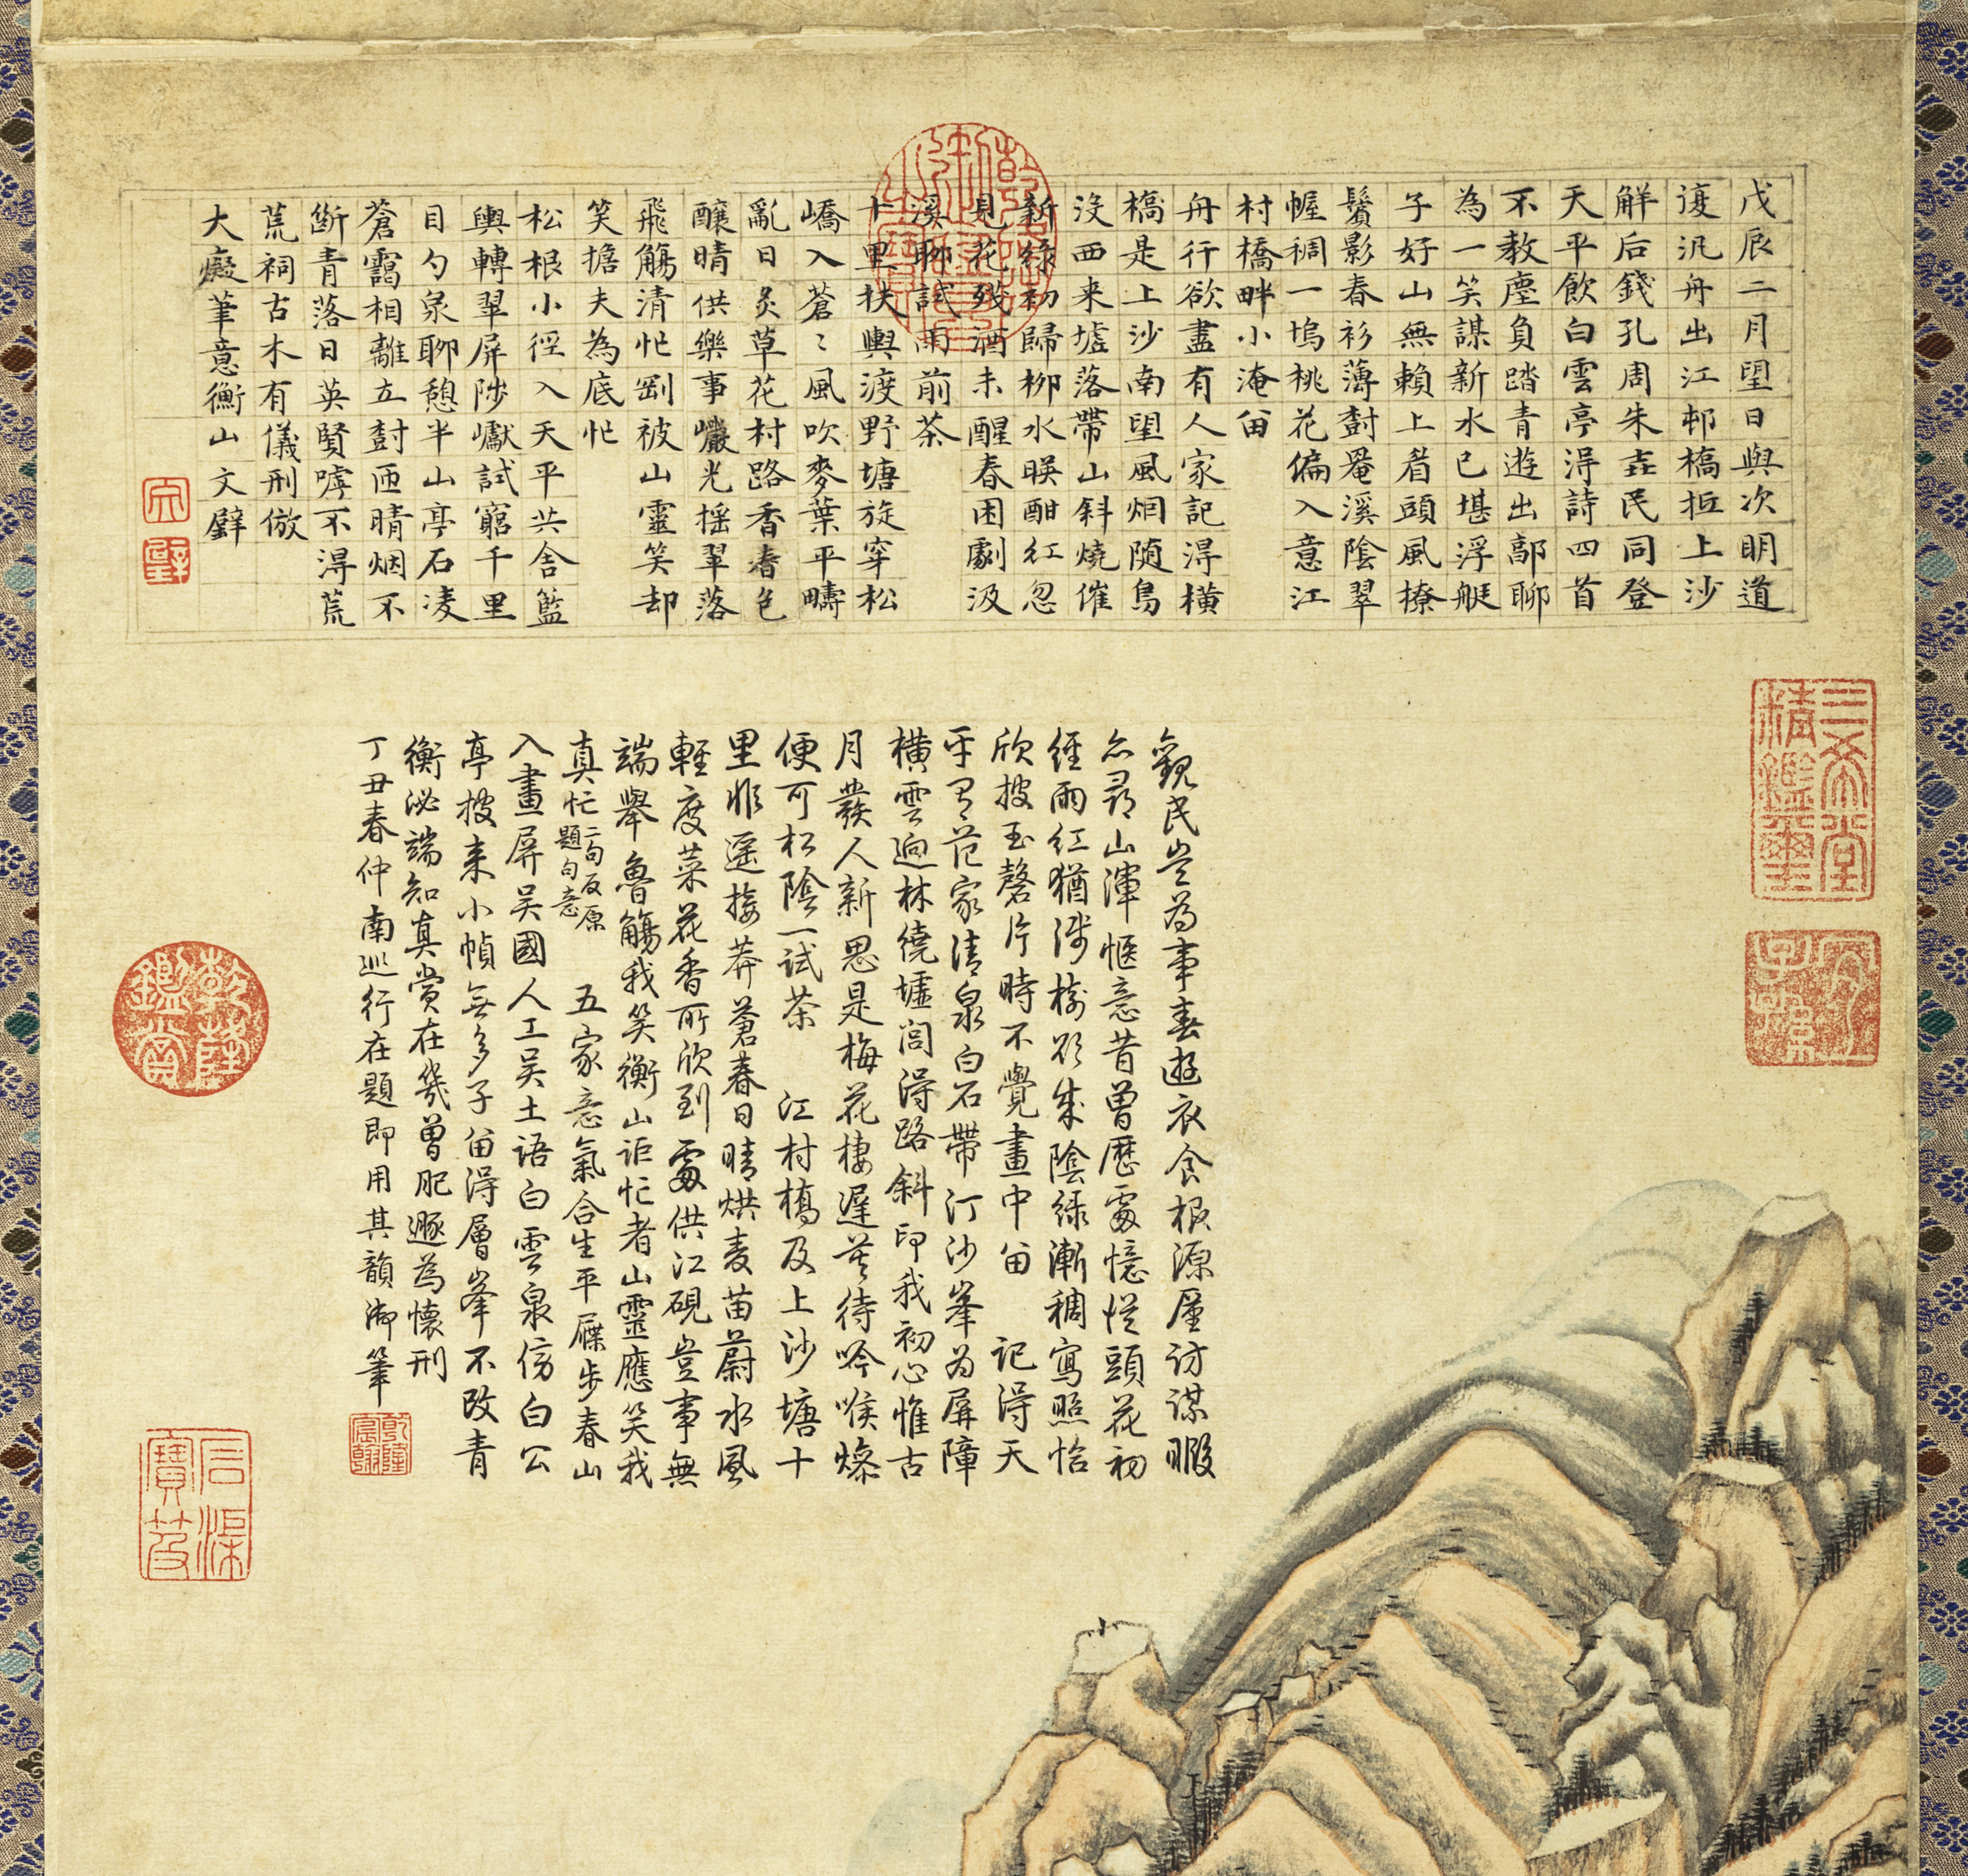 戊辰二月望日與次明道
復汎舟出江邨橋抵上沙
觧后錢孔周朱堯民同登
天平飲白雲亭淂詩四首
不教塵負踏青遊出鄗聊
為一笑謀新水已堪浮艇
子好山無賴上眉頭風撩
鬢影春衫薄樹罨溪陰翠
幄稠一塢桃花偏入意江
村橋畔小淹留
舟行欲盡有人家記淂橫
橋是上沙南望風烟随鳥
沒西来墟落帶山斜燒催
新綠初歸栁水暎酣紅忽
見花殘酒未醒春困劇汲
溪聊試雨前茶
十里扶輿渡野塘旋穿松
嶠入蒼〻風吹麥葉平疇
亂日炙草花村路香春色
釀晴供樂事巖光摇翠落
飛觴清忙剛被山靈笑却
笑擔夫為底忙
松根小徑入天平共舍籃
輿轉翠屏陟巘試窮千里
目勺泉聊憩半山亭石凌
蒼靄相離立樹匝晴烟不
斷青落日英賢嘑不淂荒
荒祠古木有儀刑倣
大癡筆意衡山文壁
文
壁
乾隆御覽之寶
三希堂精鑑璽
宜子孫
觀民豈為事春遊衣食根源廑訪謀暇
亦尋山渾愜意昔曾歷處憶從頭花初
經雨紅猶淺樹欲成陰綠漸稠寫照恰
欣披玉磬片時不覺畫中留 記淂天
平有范家清泉白石帶汀沙峯為屏障
橫雲逈林繞墟閭淂路斜印我初心惟古
月發人新思是梅花棲遲莫待吟喉燥
便可松陰一試茶 江村橋及上沙塘十
里非遥接莽蒼春日晴烘麦苗蔚水風
輕度菜花香所欣到處供江硯豈事無
端舉魯觴我笑衡山詎忙者山靈應笑我
真忙二句反原題句意 五家意氣合生平屧步春山
入畫屏吳國人工吳土語白雲泉傍白公
亭披来小幀無多子留淂層峯不改青
衡泌端知真賞在幾曾肥遯為懷刑
丁丑春仲南巡行在題即用其韻御筆
乾隆宸翰
乾隆鑑賞
石渠寶笈